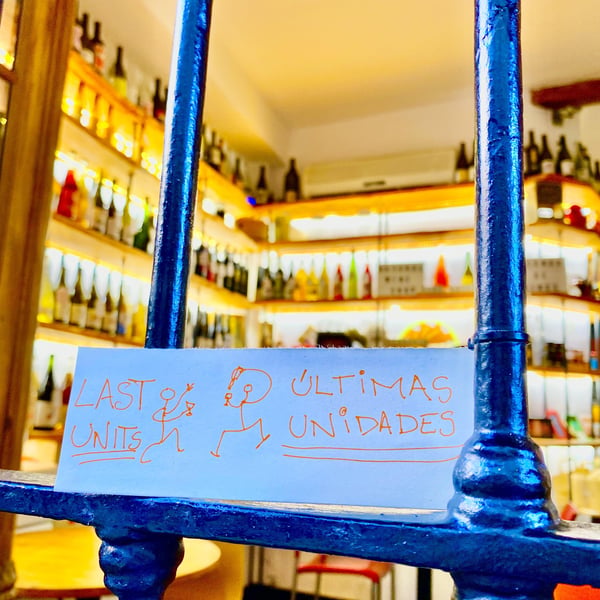 LAST
UNITS
ÚLTIMAS
UNiDADES